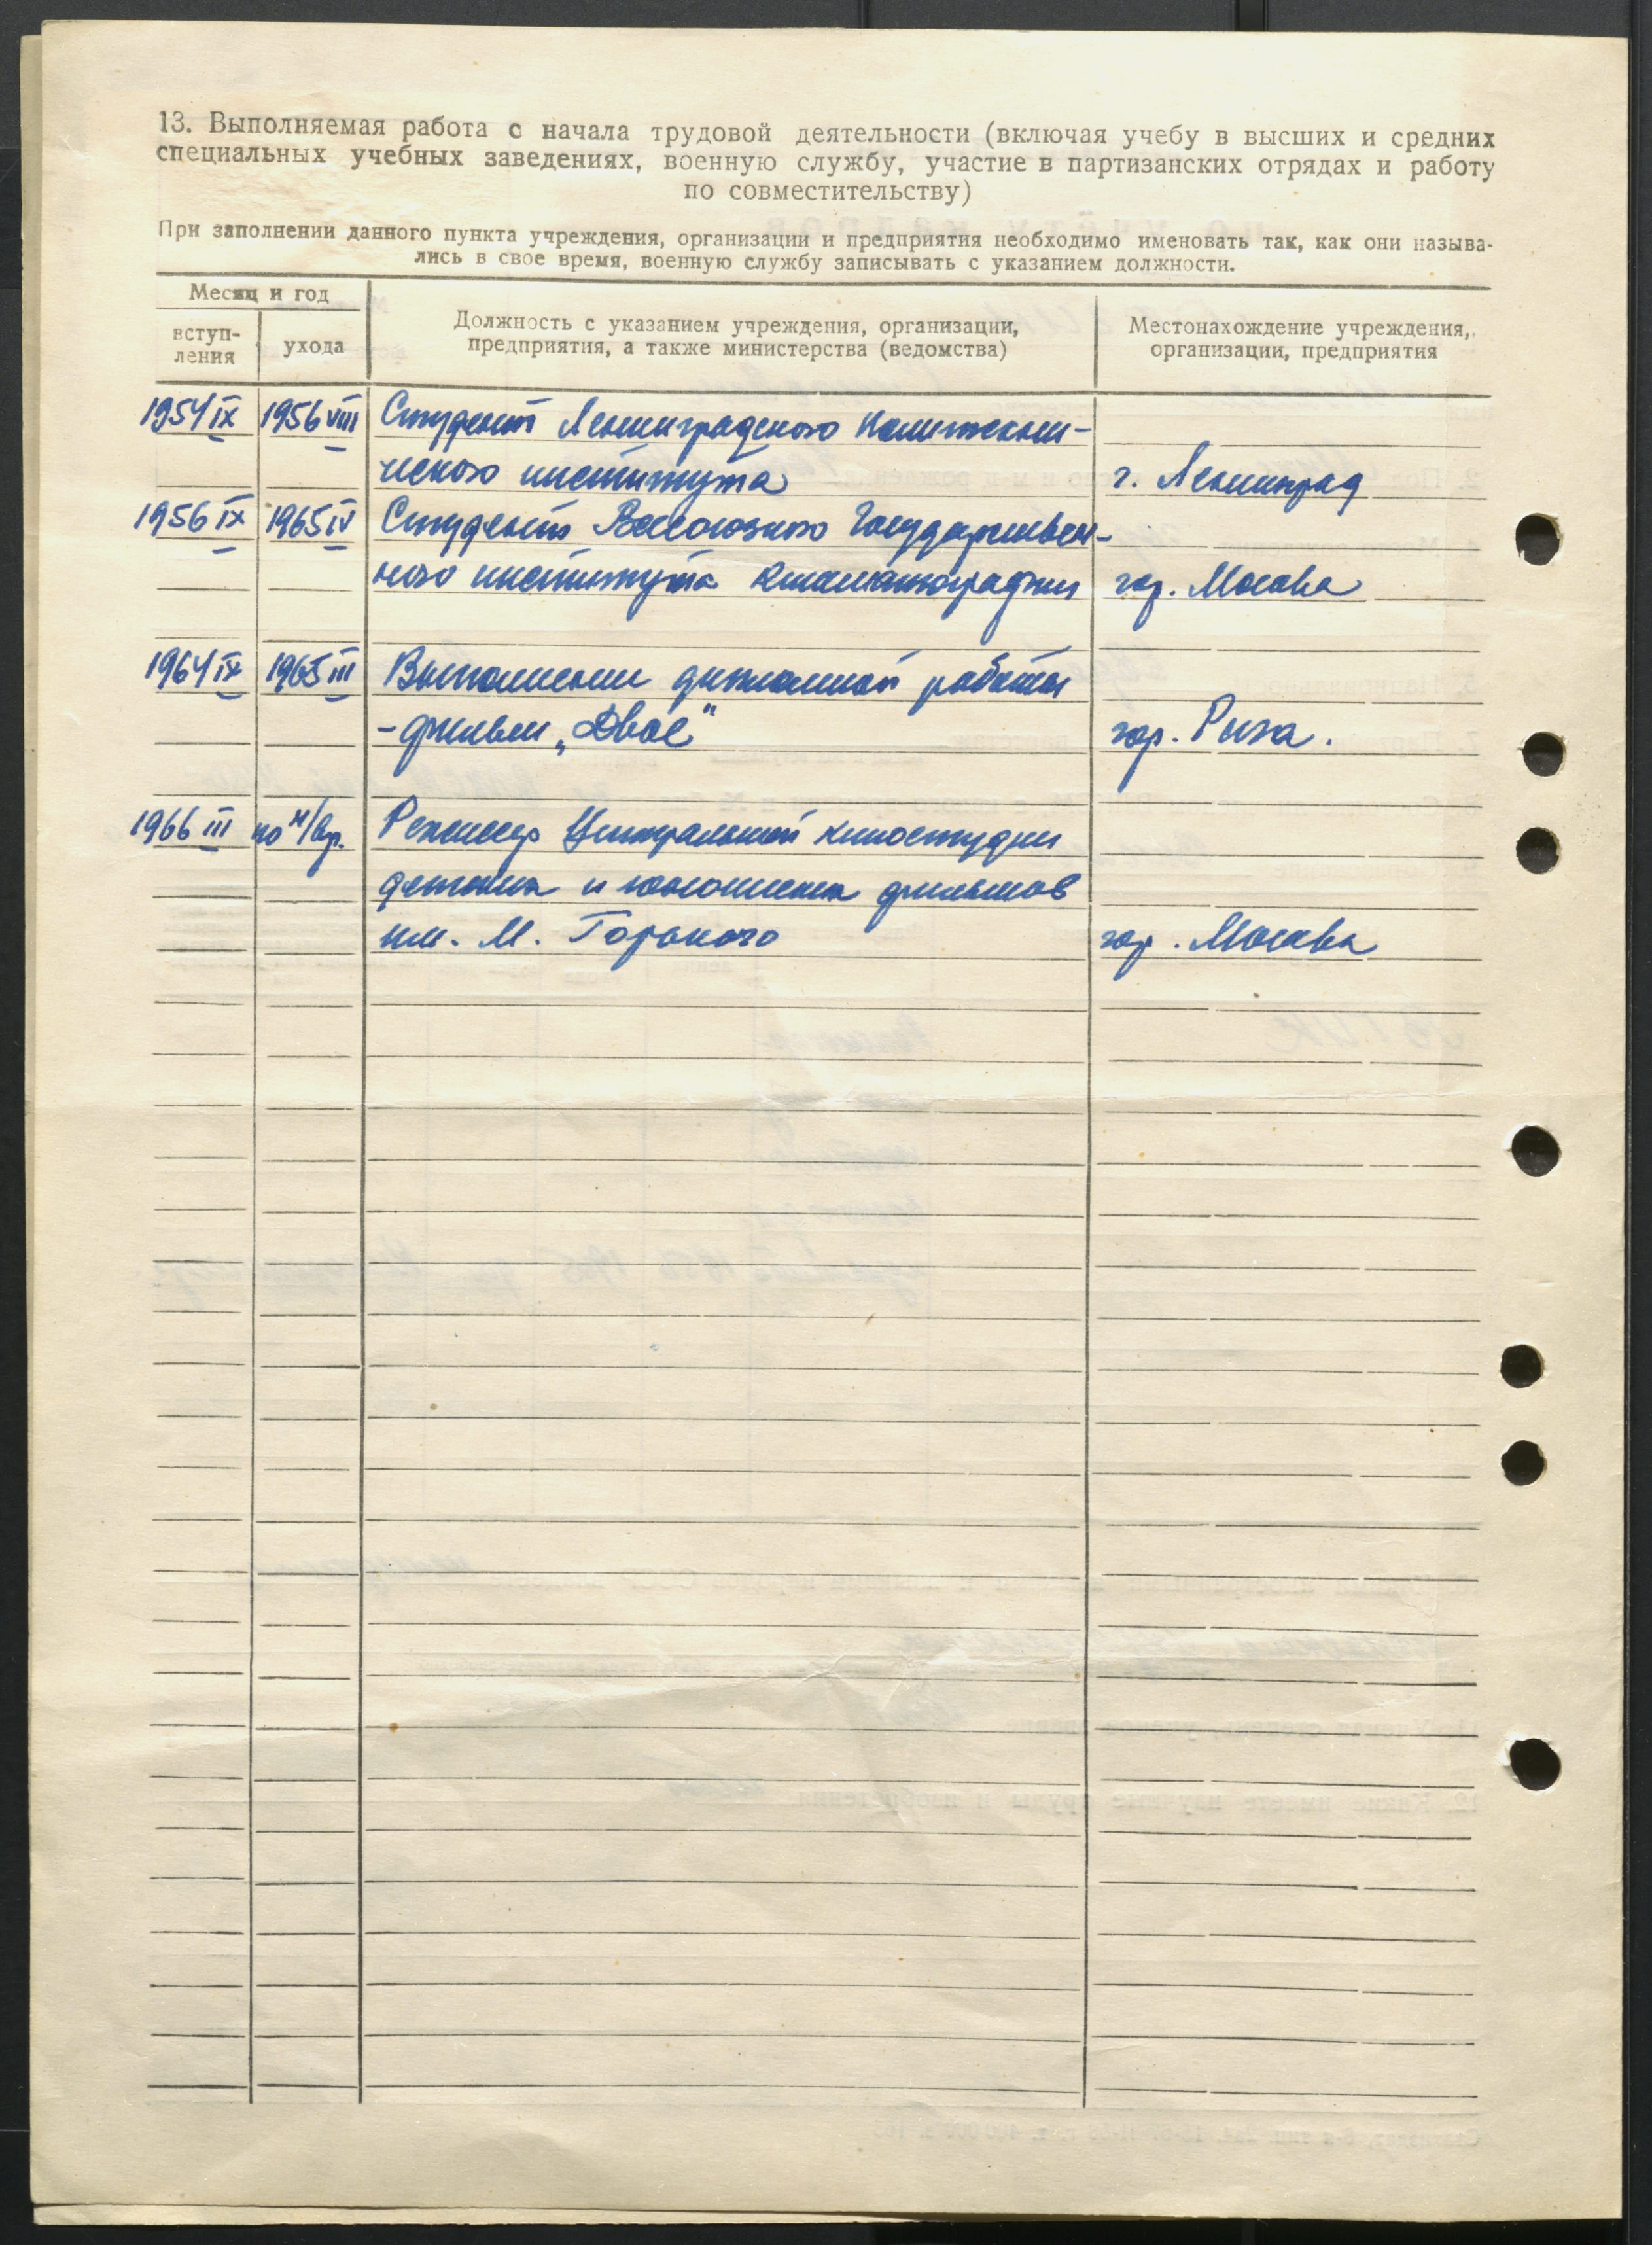 13. Выполняемая работа с начала трудовой деятельности (включая учебу в высших и средних
специальных учебных заведениях, военную службу, участие в партизанских отрядах и работу
по совместительству)
При заполнении данного пункта учреждения, организации и предприятия необходимо именовать так, как они называ-
лись в свое время, военную службу записывать с указанием должности.
Месяц и год
вступ-
ления
ухода
Должность с указанием учреждения, организации,
предприятия, а также министерства (ведомства)
Местонахождение учреждения,
организации, предприятия
1954 IX 1956 VIII Студент Ленинградского Политехни-
ческого института г. Ленинград
1956 IX 1965 IV Студент Всесоюзного Государствен-
ного института кинематографии гор. Москва
1964 IX 1965 III Выполнении дипломной работы
- фильм „Двое" гор. Рига.
1966 III по н/вр. Режиссер Центральной киностудии
детских и юношеских фильмов
им. М. Горького гор. Москва